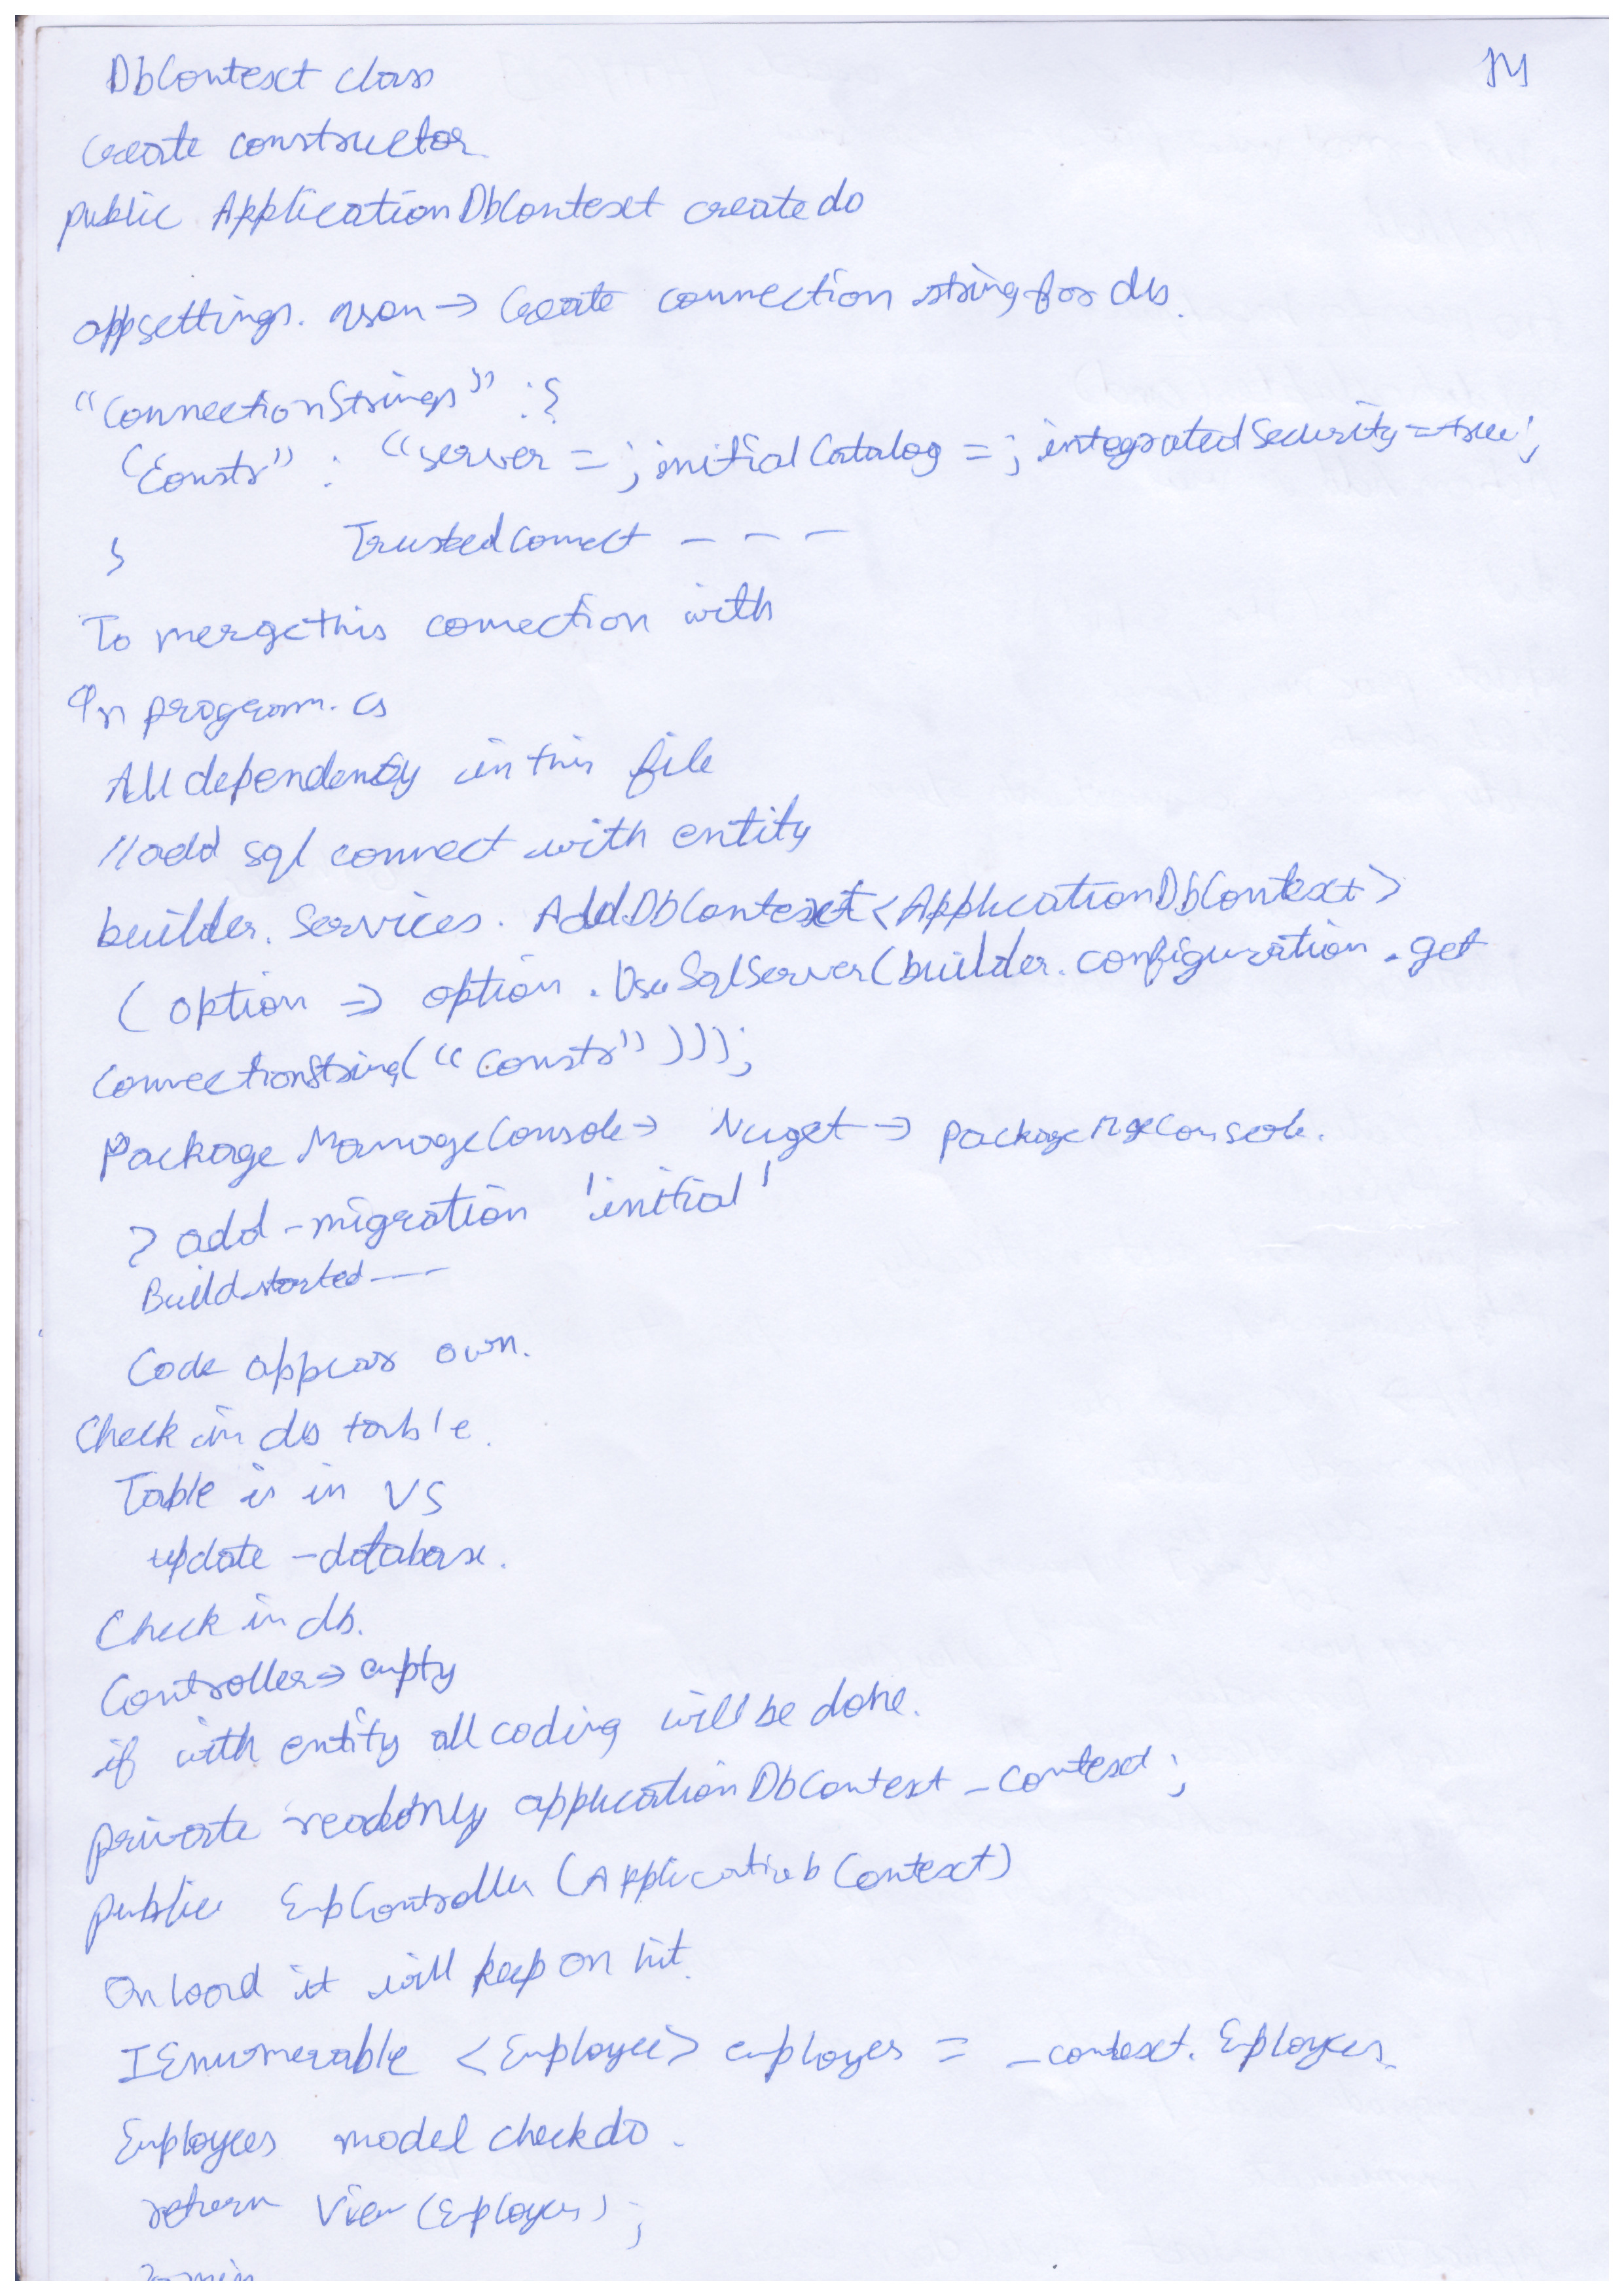 DbContext class
Create constructor
public ApplicationDbContext create do
appsettings. json → Create connection string for db.
"ConnectionStrings" : {
"Constr" : "server = ; initial Catalog = ; integrated Security = true ;
} Trusted Connect - - -
To merge this connection with
In program. cs
All dependency in this file
// add sql connect with entity
builder. Services. AddDbContext <ApplicationDbContext>
( option => option . UseSqlServer (builder. configuration . get
ConnectionString( "Constr" )));
Package ManageConsole → Nuget → package Mge console.
> add - migration 'initial'
Build started ---
Code appear own.
Check in db table.
Table is in VS
update - database.
Check in db.
Controller → empty
if with entity all coding will be done.
private readonly applicationDbContext _context ;
public EmpController (Applicatiob Context)
On load it will keep on hit.
IEnumerable <Employee> employes = _context. Eployees
Employees model check do.
return View (Eployes) ;